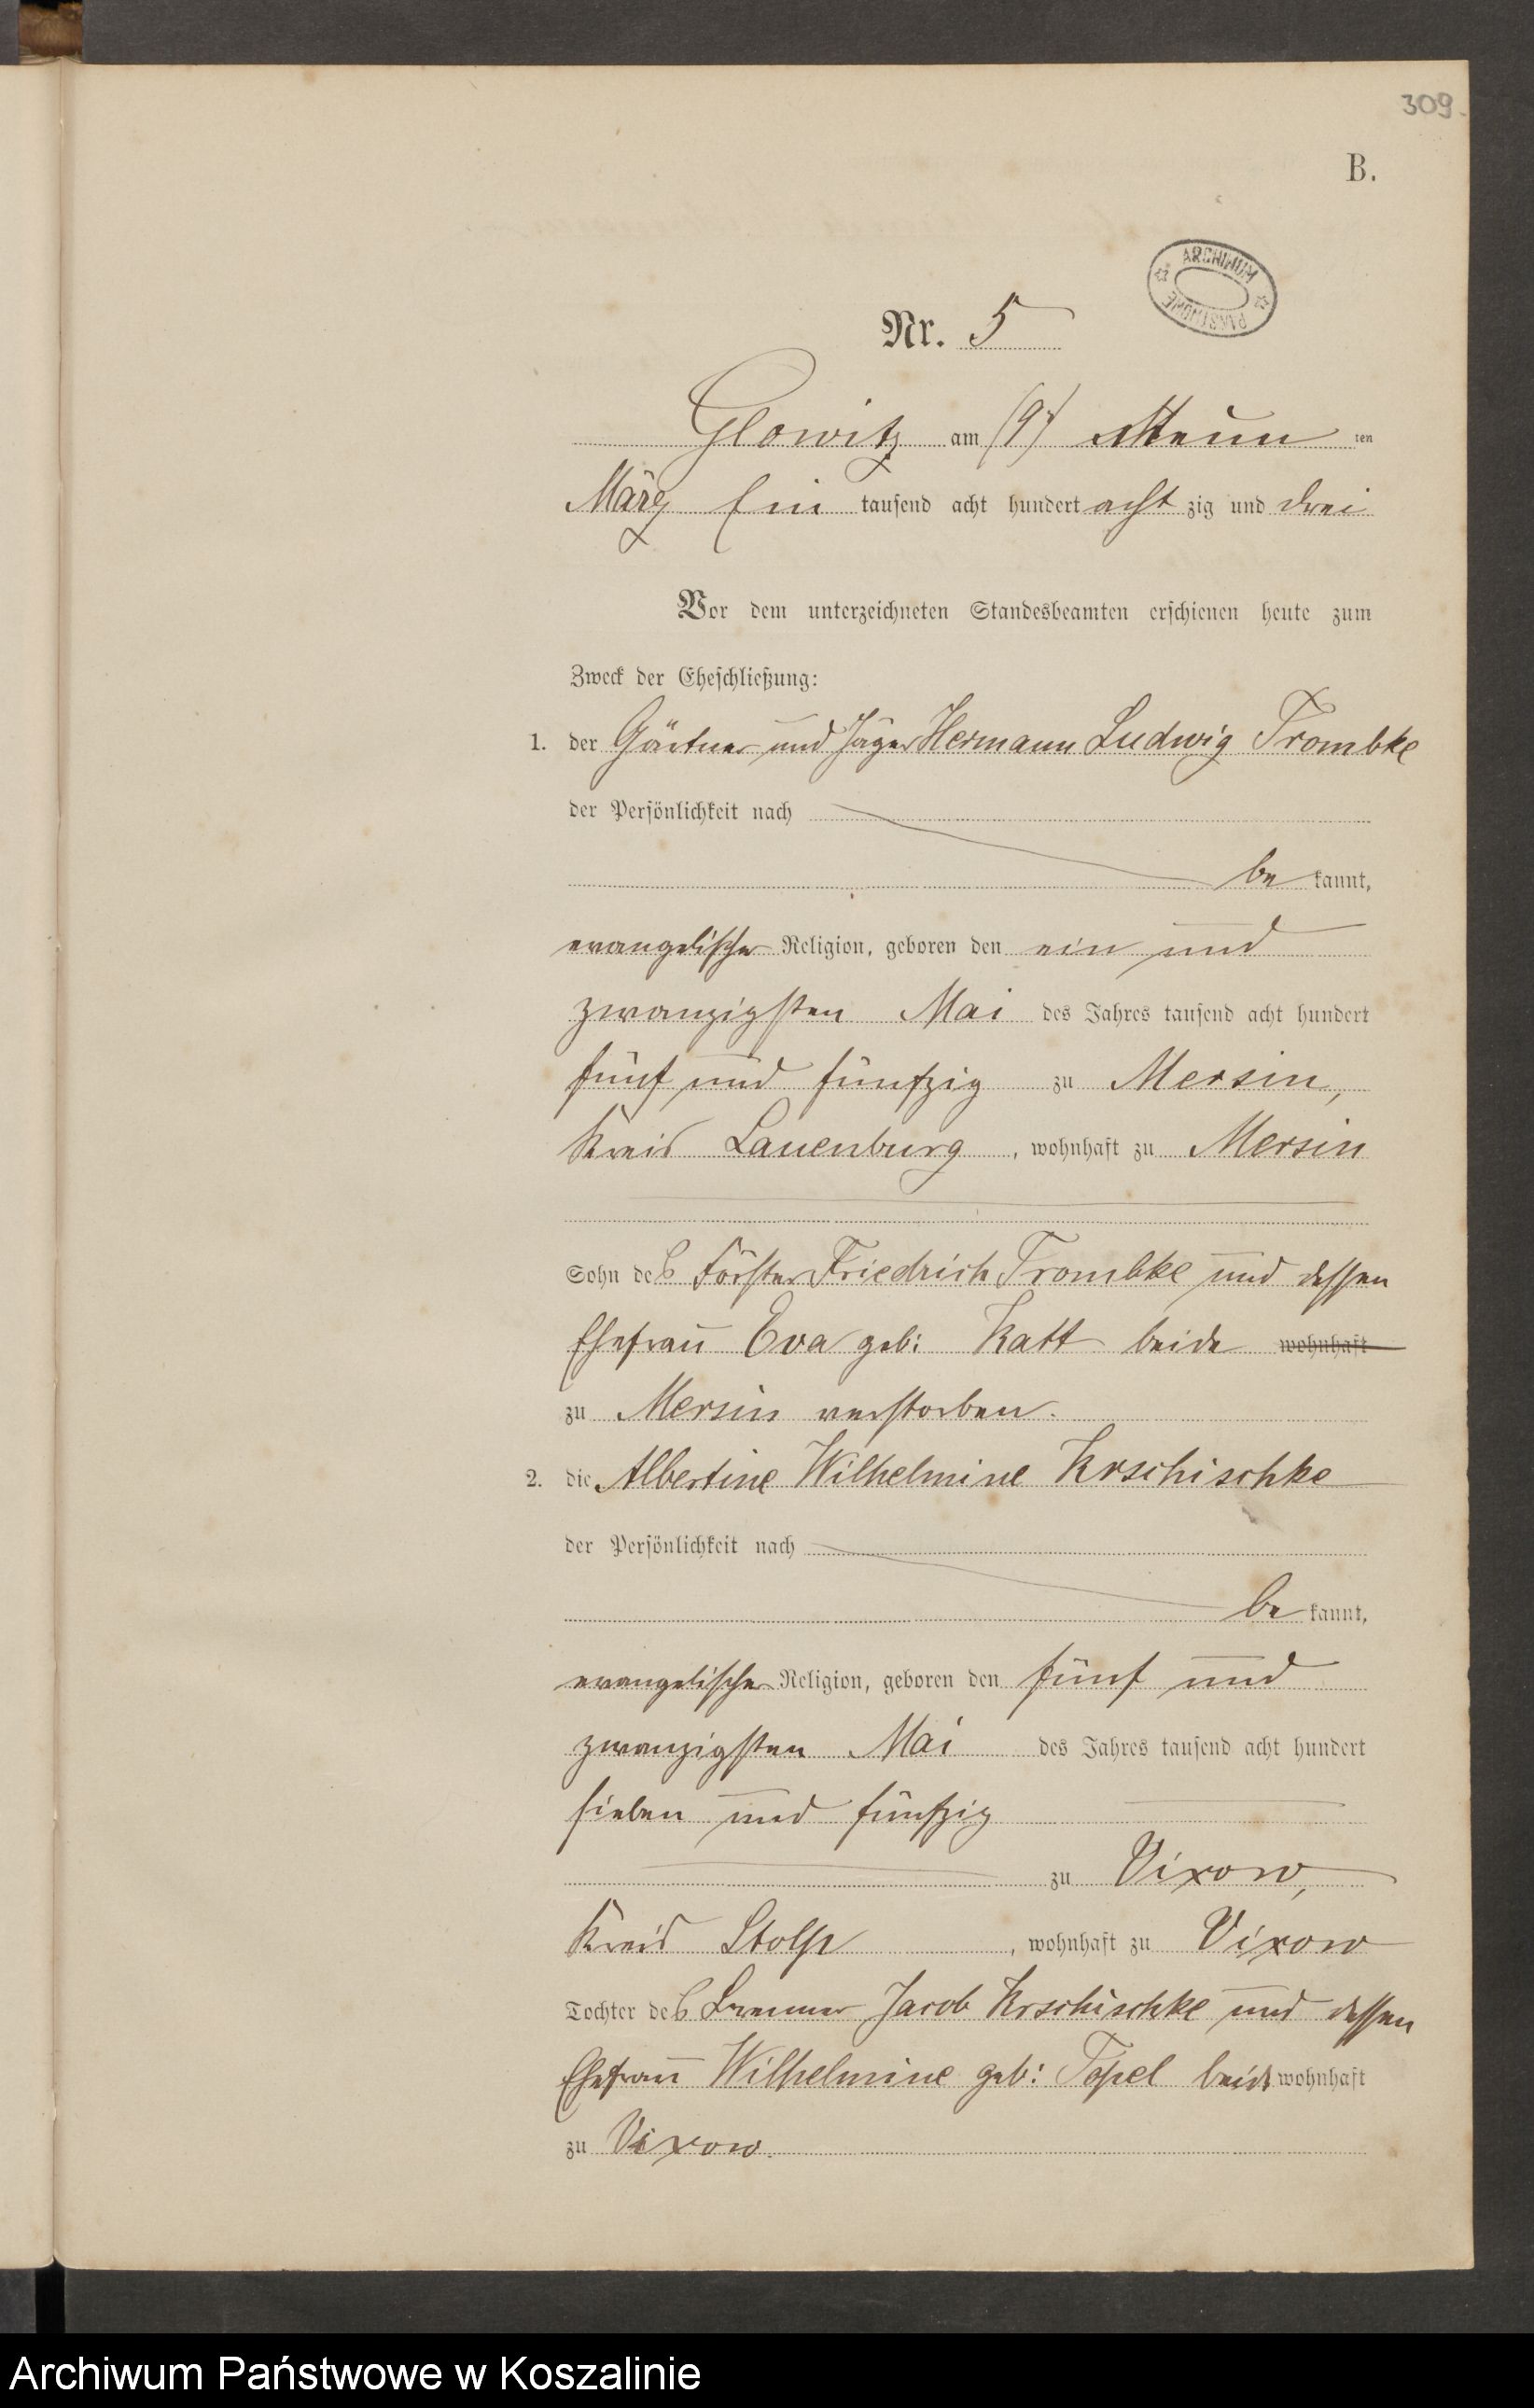 309.
B.
ARCHIWUM PAŃSTWOWE
Nr. 5
Glowitz am (9) Neun ten
März Ein tausend acht hundert acht zig und drei
Vor dem unterzeichneten Standesbeamten erschienen heute zum
Zweck der Eheschließung:
1. der Gärtner und Jäger Hermann Ludwig Trombke
der Persönlichkeit nach
be kannt,
evangelischer Religion, geboren den ein und
zwanzigsten Mai des Jahres tausend acht hundert
fünf und fünfzig zu Mersin,
Kreis Lauenburg, wohnhaft zu Mersin
Sohn des Förster Friedrich Trombke und dessen
Ehefrau Eva geb: Katt beide wohnhaft
zu Mersin verstorben.
2. die Albertine Wilhelmine Krschischke
der Persönlichkeit nach
be kannt,
evangelischer Religion, geboren den fünf und
zwanzigsten Mai des Jahres tausend acht hundert
sieben und fünfzig
zu Vixow,
Kreis Stolp, wohnhaft zu Vixow
Tochter des Brenner Jacob Krschischke und dessen
Ehefrau Wilhelmine geb: Topel beide wohnhaft
zu Vixow.
Archiwum Państwowe w Koszalinie